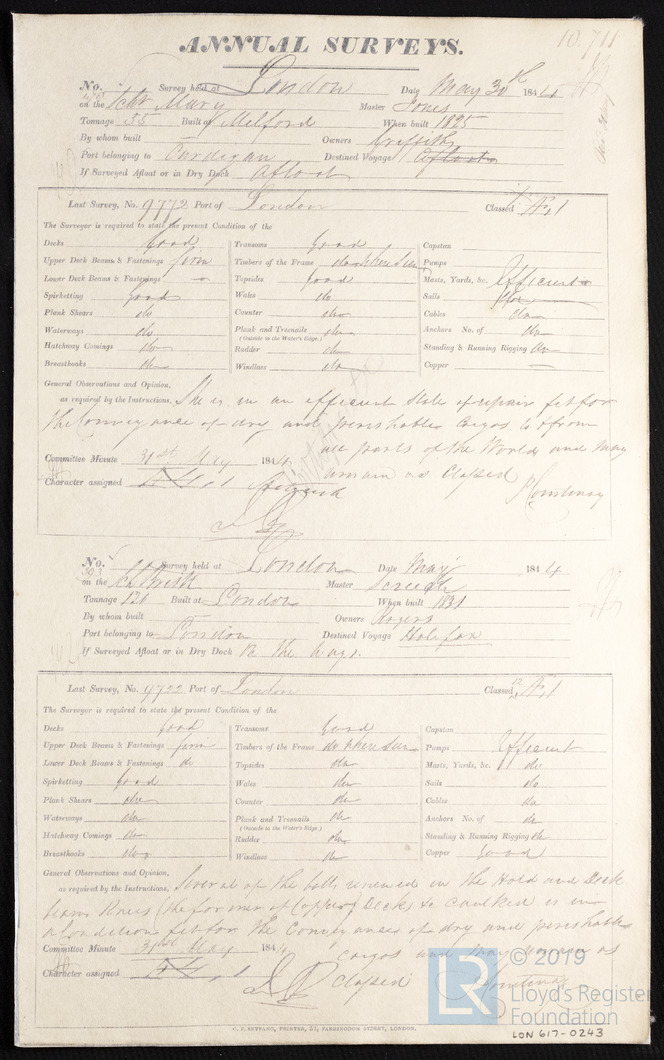 10.711
ANNUAL SURVEYS.
No. Survey held at London Date May 30th 1844
on the Schr Mary Master Jones
Tonnage 55 Built at Milford When built 1825
By whom built Owners Griffiths
Port belonging to Cardigan Destined Voyage
If Surveyed Afloat or in Dry Dock Afloat
Last Survey, No. 9772 Port of London Classed A1
The Surveyor is required to state the present Condition of the
Decks good Transoms good Capstan
Upper Deck Beams & Fastenings firm Timbers of the Frame do when seen Pumps
Lower Deck Beams & Fastenings Topsides good Masts, Yards, &c. Efficient
Spirketting good Wales do Sails do
Plank Shears do Counter do Cables do
Waterways do Plank and Treenails do Anchors No. of do
(Outside in the Water's Edge.)
Hatchway Comings do Rudder do Standing & Running Rigging do
Breasthooks do Windlass do Copper —
General Observations and Opinion,
as required by the Instructions, She is in an efficient state of repair fit for
the Conveyance of dry and perishable cargos to & from
all parts of the World and may
remain as Classed
Committee Minute 31st May 1844
Character assigned
No. Survey held at London Date May 1844
on the Master Screech
Tonnage 126 Built at London When built 1831
By whom built Owners Rogers
Port belonging to London Destined Voyage Halifax
If Surveyed Afloat or in Dry Dock the ways.
Last Survey, No. 9722 Port of London Classed 12 A1
The Surveyor is required to state the present Condition of the
Decks good Transoms good Capstan
Upper Deck Beams & Fastenings firm Timbers of the Frame do when seen Pumps Efficient
Lower Deck Beams & Fastenings do Topsides do Masts, Yards, &c. do
Spirketting good Wales do Sails do
Plank Shears do Counter do Cables do
Waterways do Plank and Treenails do Anchors No. of do
(Outside in the Water's Edge.)
Hatchway Comings do Rudder do Standing & Running Rigging do
Breasthooks do Windlass do Copper good
General Observations and Opinion,
as required by the Instructions, Several of the bolts renewed in the Hold and Deck
beam Knees (the former of Copper) Decks &c caulked is in
a Condition fit for the Conveyance of dry and perishable
cargos and may remain as
Classed
Committee Minute 31st May 1844
Character assigned
LR © 2019
Lloyd's Register
Foundation
LON 617-0243